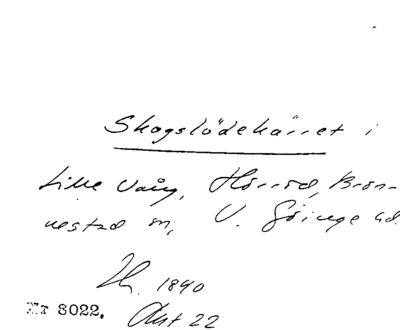 Skogslödekärret i
Lilla Vång, Hörröd, Brön-
nestad sn, V. Göinge hd.
Th. 1840
Nr 8022. Akt 22